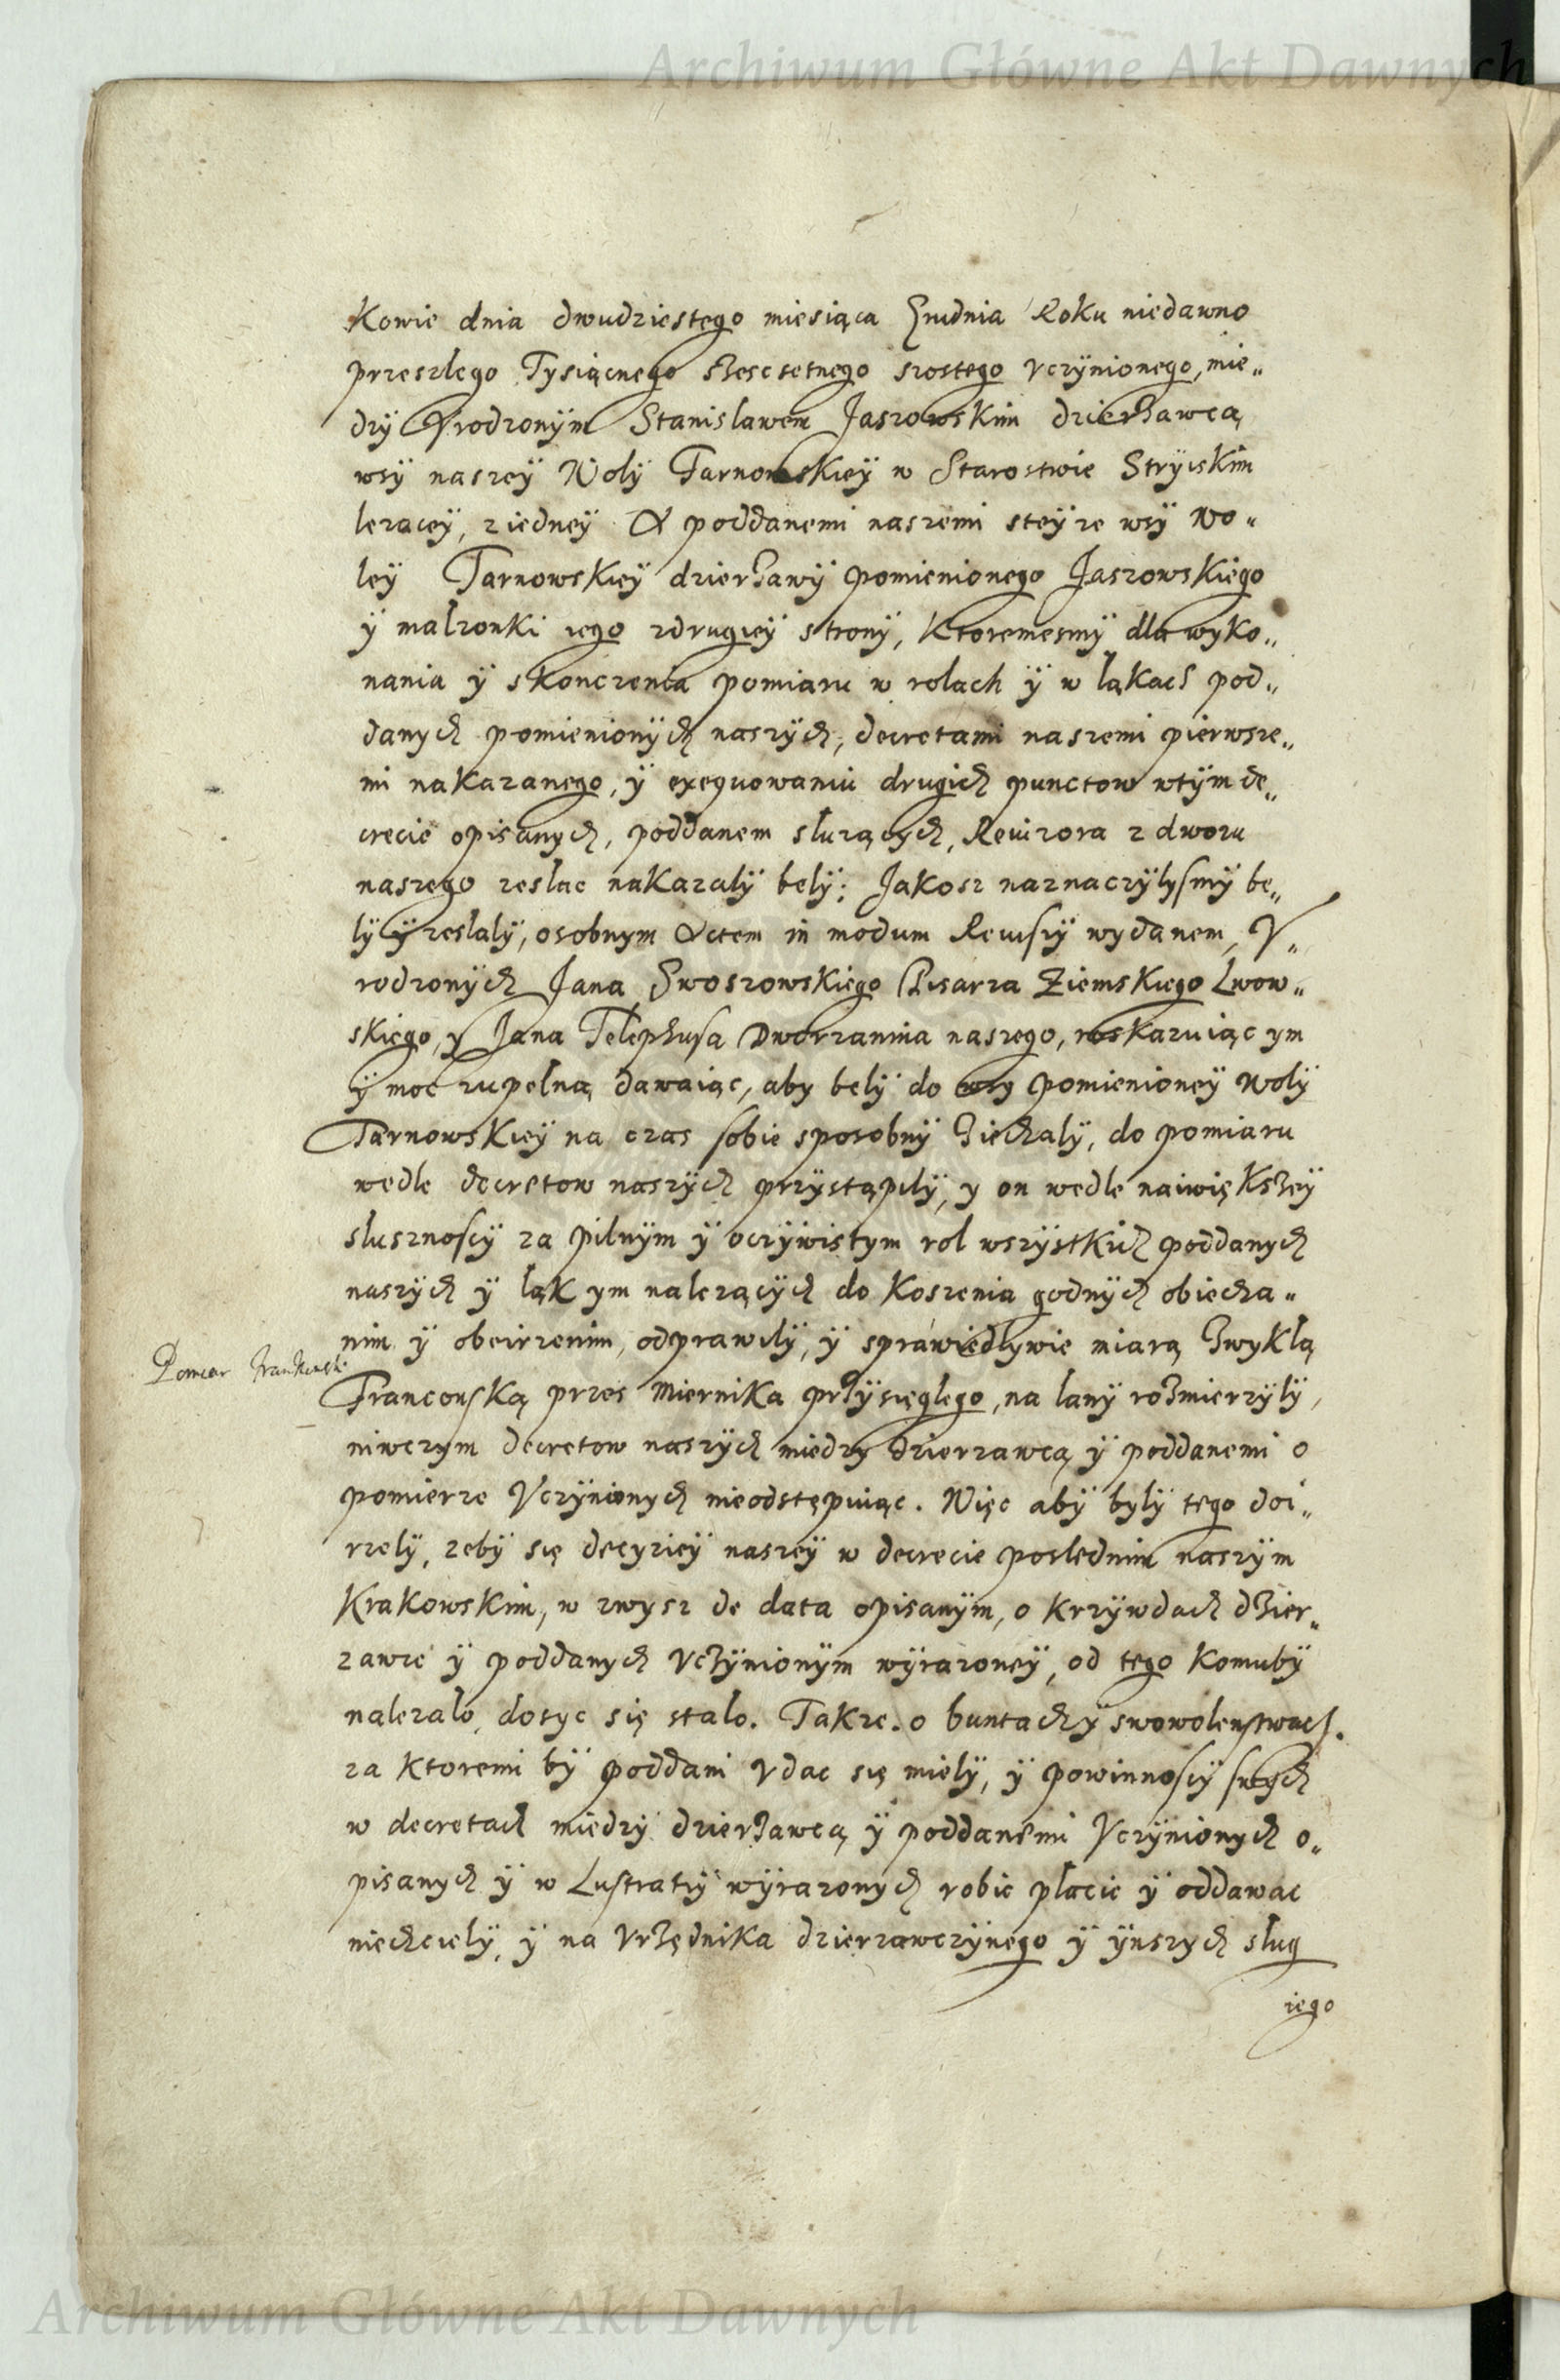 Archiwum Główne Akt Dawnych
kowie dnia dwudziestego miesiąca Grudnia Roku niedawno
przeszlego Tysiącnego szescsetnego szostego vczÿnionego, mie„
dzÿ Vrodzonÿm Stanislawem Jaszowskim dzierzawcą
wsÿ naszeÿ Wolÿ Tarnowskieÿ w Starostwie Strÿiskim
lezaceÿ, z iedneÿ A poddanemi naszemi steÿze wsÿ Wo„
leÿ Tarnowskieÿ dzierzawÿ pomienionego Jaszowskiego
ÿ malzonki iego zdrugieÿ stronÿ, ktoremesmÿ dla wyko„
nania ÿ skonczenia pomiaru w rolach ÿ w łąkach pod„
danych pomienionÿch naszÿch, decretami naszemi pierwsze„
mi nakazanego, ÿ exequowaniu drugich punctow wtÿm de„
crecie opisanych, poddanem sluzących, Reuizora z dworu
naszego zeslac nakazalÿ belÿ: Jakosz naznaczÿlysmÿ be„
lÿ ÿ zeslalÿ, osobnym Actem in modum Reuisiÿ wydanem, V„
rodzonÿch Jana Swoszowskiego Pisarza Ziemskiego Lwow„
skiego, y Jana Telephusa Dworzanina naszego, roskazuiąc ym
ÿ moc zupelną dawaiąc, aby belÿ do wsy pomienioneÿ Wolÿ
Tarnowskieÿ na czas sobie sposobnÿ ziechalÿ, do pomiaru
wedle decretow naszÿch przÿstąpilÿ, y on wedle naiwiększeÿ
slusznoscÿ za pilnÿm ÿ oczÿwistym rol wszÿstkich poddanych
naszÿch ÿ łąk ym nalezącÿch do koszenia godnÿch obiecha„
nim ÿ obeirzenim, odprawilÿ, ÿ sprawiedlywie miarą zwykłą
Pomiar Frankonski
Franconską przes Miernika przÿsięglego, na lanÿ rozmierzÿlÿ,
niwczym decretow naszÿch miedzy dzierzawcą ÿ poddanemi o
pomierze Vczÿnionych nieodstępuiąc. Więc abÿ bylÿ tego doi„
rzelÿ, zebÿ się decyzieÿ naszeÿ w decrecie poslednim naszÿm
Krakowskim, w zwysz de data opisanÿm, o krzÿwdach dzier„
zawce ÿ poddanych vczÿnionÿm wÿrazoneÿ, od tego komubÿ
nalezalo, dosyc się stalo. Takze. o buntach ÿ swowolenstwach.
za ktoremi bÿ poddani vdac się mielÿ, ÿ powinnoscÿ swÿch
w decretach miedzÿ dzierzawcą ÿ poddanemi Vczÿnionych o„
pisanych ÿ w Lustratiÿ wÿrazonych robic płacic ÿ oddawac
niechcielÿ, ÿ na vrzędnika dzierzawczÿnego ÿ ÿnszych slug
iego
Archiwum Główne Akt Dawnych